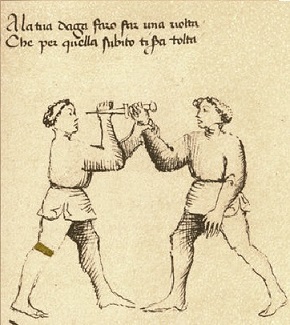 A la tua daga faro far una volta
Che per quella subito ti sera tolta